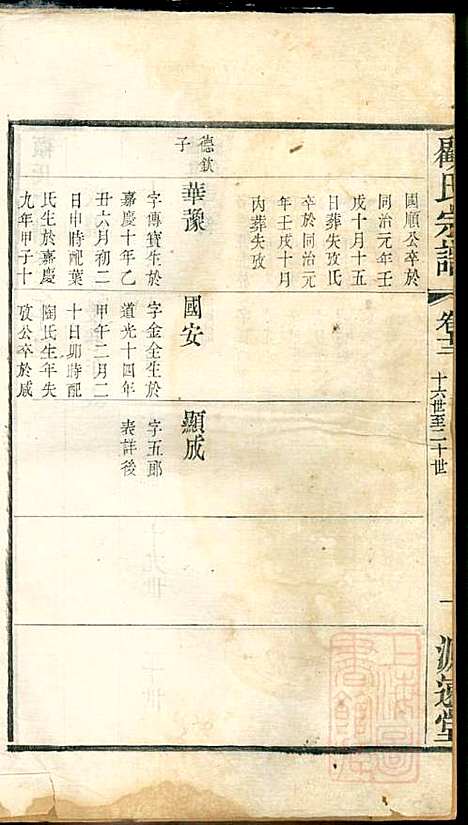 顧氏宗譜
卷十二
十六世至二十世
一
源遠堂
國順公卒於
同治元年壬
戌十月十五
日葬失攷氏
卒於同治元
年壬戌十月
內葬失攷
德欽
子
華豫
字傳寶生於
嘉慶十年乙
丑六月初二
日申時配葉
氏生於嘉慶
九年甲子十
國安
字金全生於
道光十四年
甲午二月二
十日卯時配
陶氏生年失
攷公卒於咸
顯成
字五郎
表詳後
上海圖
書館藏